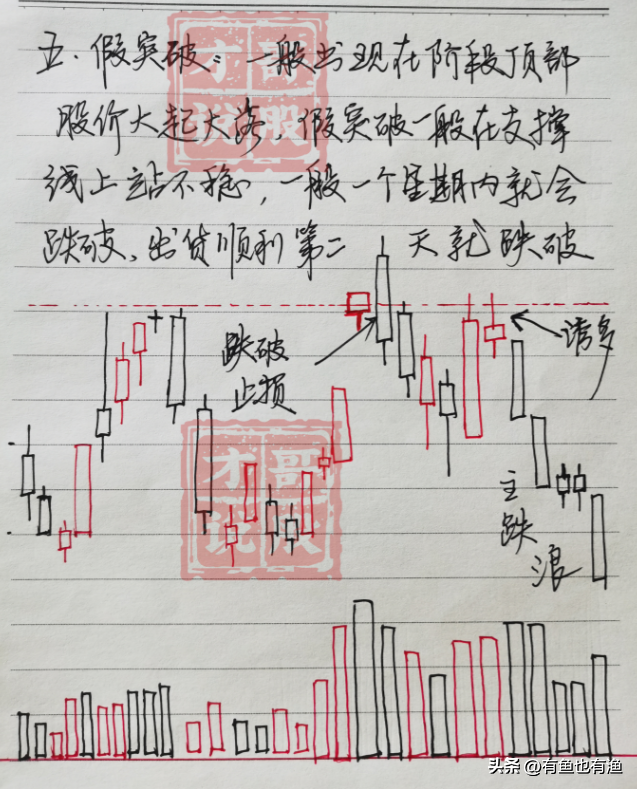 五.假突破:一般出现在阶段顶部
股价大起大落,假突破一般在支撑
线上站不稳,一般一个星期内就会
跌破、出货顺利第二 天就跌破
跌破
止损
诱多
主
跌
浪
才哥
说股
才哥
说股
头条 @有鱼也有渔